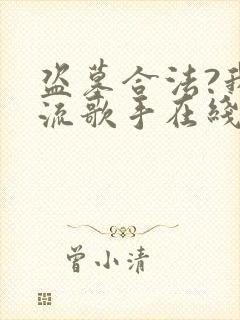 盗墓合法?我
流歌手在线
曾小清